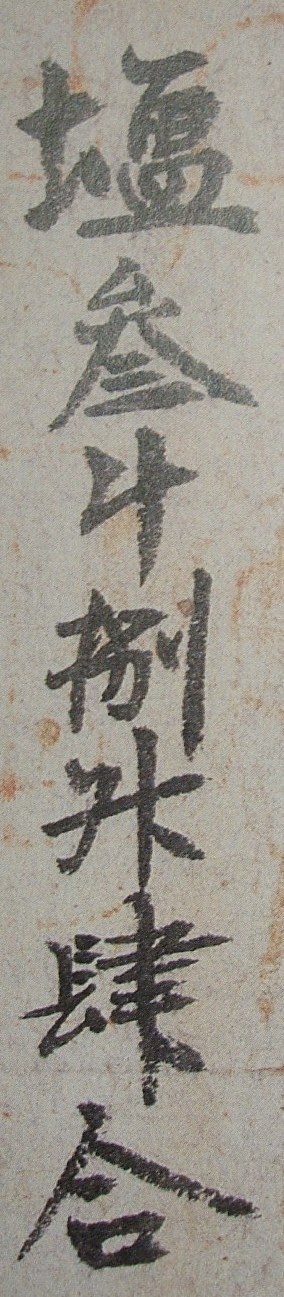 塩叁斗捌升肆合